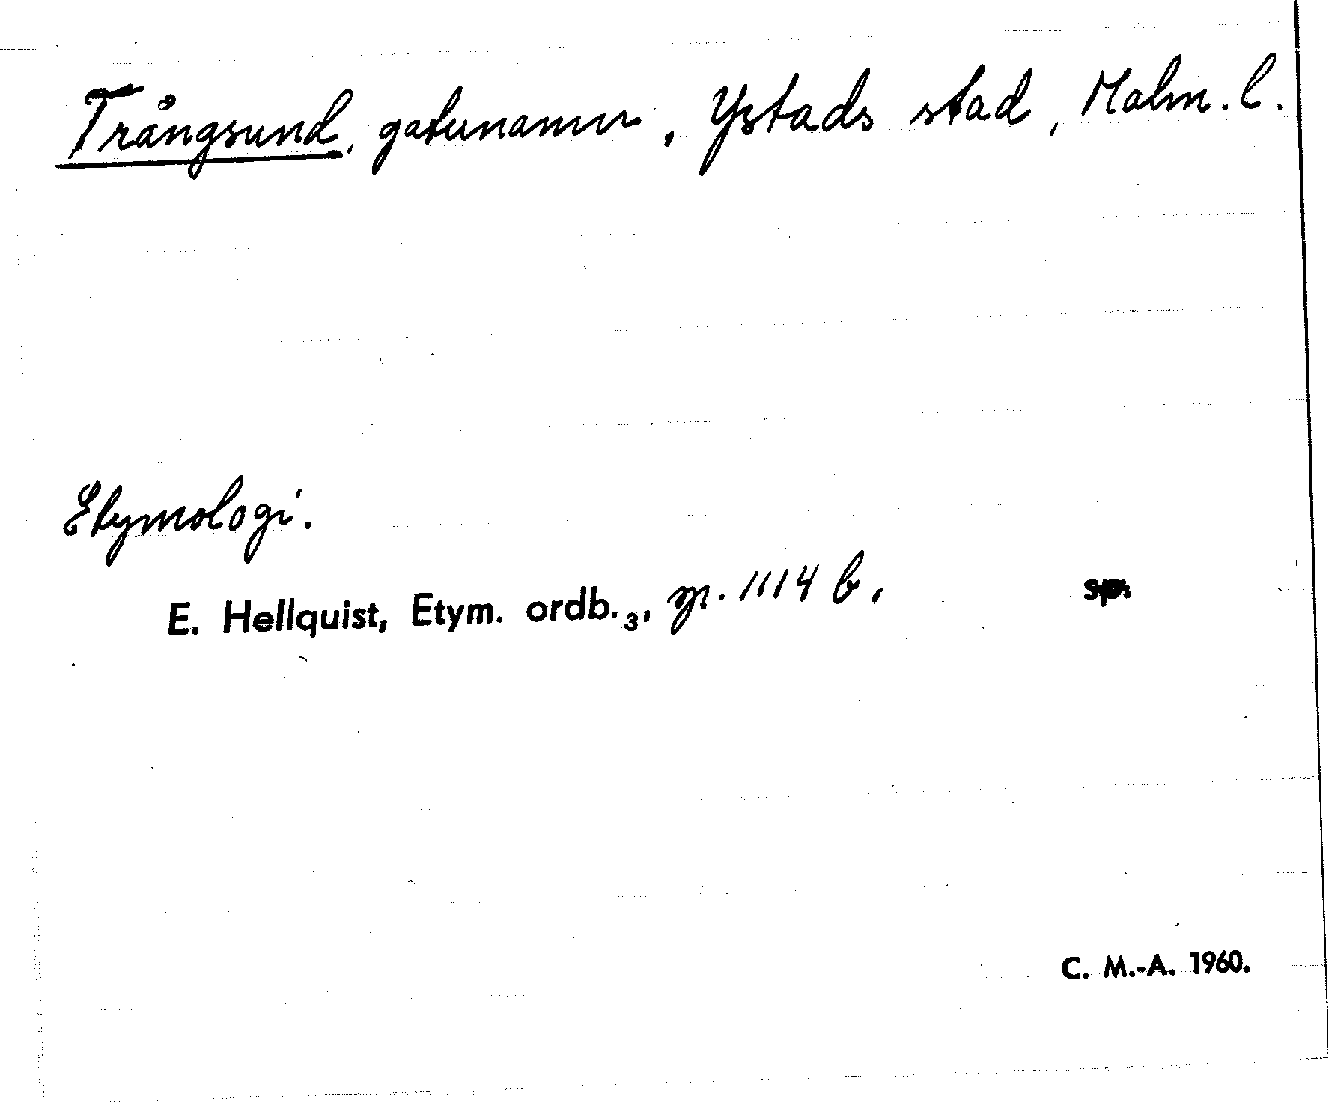 Trångsund, gatunamn, Ystads stad, Malm. l.
Etymologi.
E. Hellquist, Etym. ordb.₃, p. 1114 b.
C. M.-A. 1960.